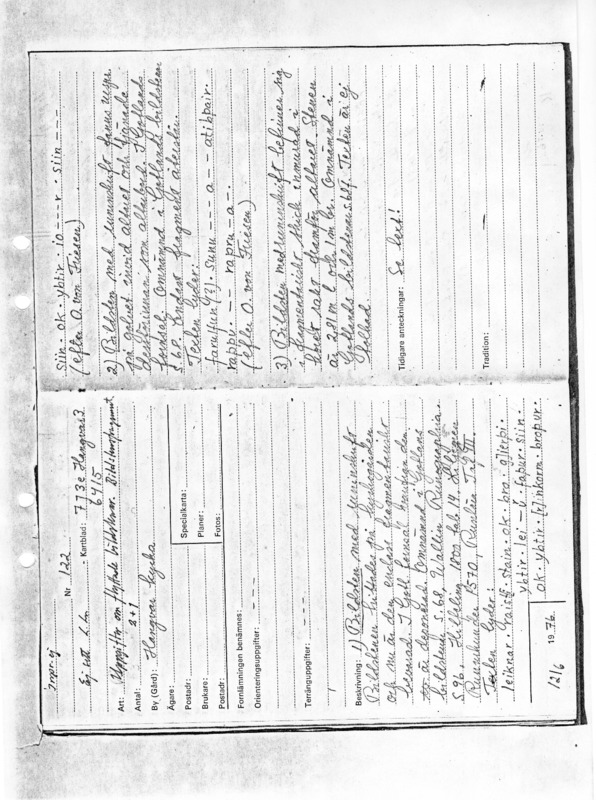 Inspr. ej
Ej sett L.Ln
Nr 122
Kartblad: 7J3e Hangvar3
6415
Art: Uppgifter om flyttade bildstenar. Bildstensfragment
Antal: 2+1
By (Gård): Hangvar kyrka
Ägare:
Postadr:
Brukare:
Postadr:
Specialkarta:
Planer:
Foton:
Fornlämningen benämnes:
Orienteringsuppgifter: - - -
Terränguppgifter: - - -
Beskrivning: 1) Bildsten med runinskrift
Bildstenen hittades vid kyrkogården
och nu är den endast fragmentariskt
bevarad. I Gotl fornsal
är deponerad. Omnämnd i Gotlands
bildstenar s. 68. Wallin Runographia
s 96. Hilfeling 1800 tab 14. Liljegren
Runurkunder 1570. Runlän Tab VII
Texten lyder:
leiknar · raisti · stain · ok · bro · g)ierþi ·
ybtir · lei - - u · faþur · siin ·
ok · ybtir · [r]inkorm · broþur ·
12/6 1976.
siin · ok · ybtir · io - - - r · siin - - -
(efter O. von Friesen)
2) Bildsten med runinskrift fanns ursprungligen
på golvet invid altaret och tjänade
som altarbord. I Gotlands
fornsal. Omnämnd i Gotlands bildstenar
s. 68. Endast fragment återstår.
Texten lyder:
faruHun (?) · sunu - - - a - - atibþair ·
raþþu · - - - raþru - a - ·
(efter O. von Friesen)
3) Bildsten med runinskrift befinner sig
i fragmentariskt skick inmurad i
koret rakt framför altaret. Stenen
är 2.81 m l och 1 m br. Omnämnd i
Gotlands bildstenar s. 68. Texten är ej
tolkad.
Tidigare anteckningar: Se text!
Tradition: —